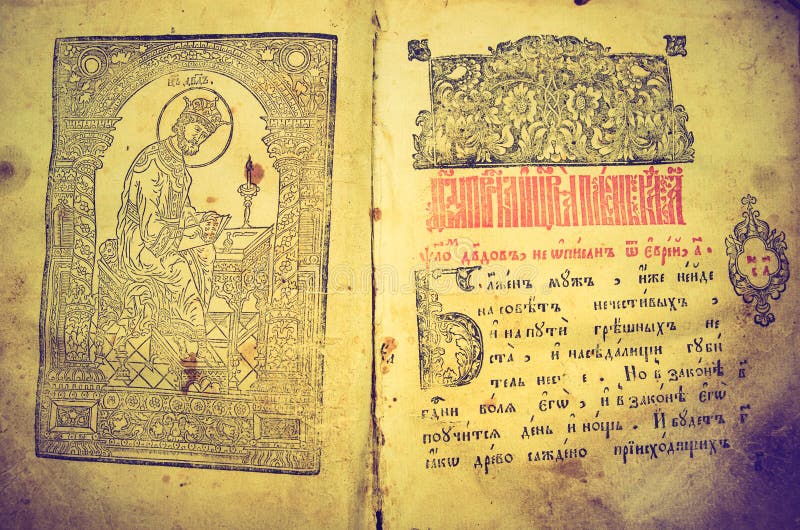 Ѱало́м дв҃довъ, не ѡ҆пи́санъ ѿ є҆врє́й, а҃.
Блаже́нъ мꙋ́жъ, и҆́же не и҆́де
на совѣ́тъ нечести́выхъ,
и҆ на пꙋтѝ грѣ́шныхъ не
ста̀, и҆ на сѣда́лищи гꙋби́
тель не сѣ́де. Но в зако́нѣ
гдⷭ҇ни во́лѧ є҆гѡ̀, и҆ в зако́нѣ є҆гѡ̀
поꙋчи́тсѧ де́нь и҆ но́щь. И҆ бꙋ́детъ
ꙗ҆́кѡ дре́во саждено̀ при и҆схо́дищихъ